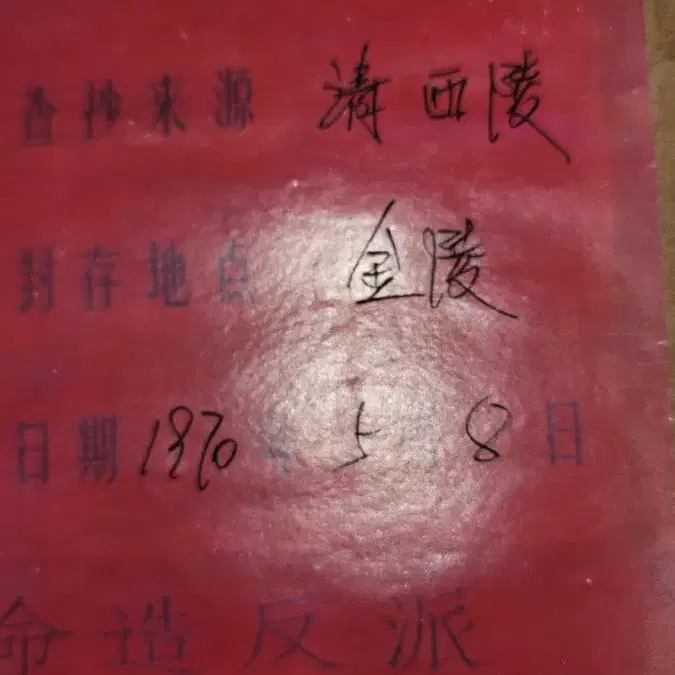 查抄来源 清西陵
封存地点 金陵
日期 1970年 5月 8日
命造反派